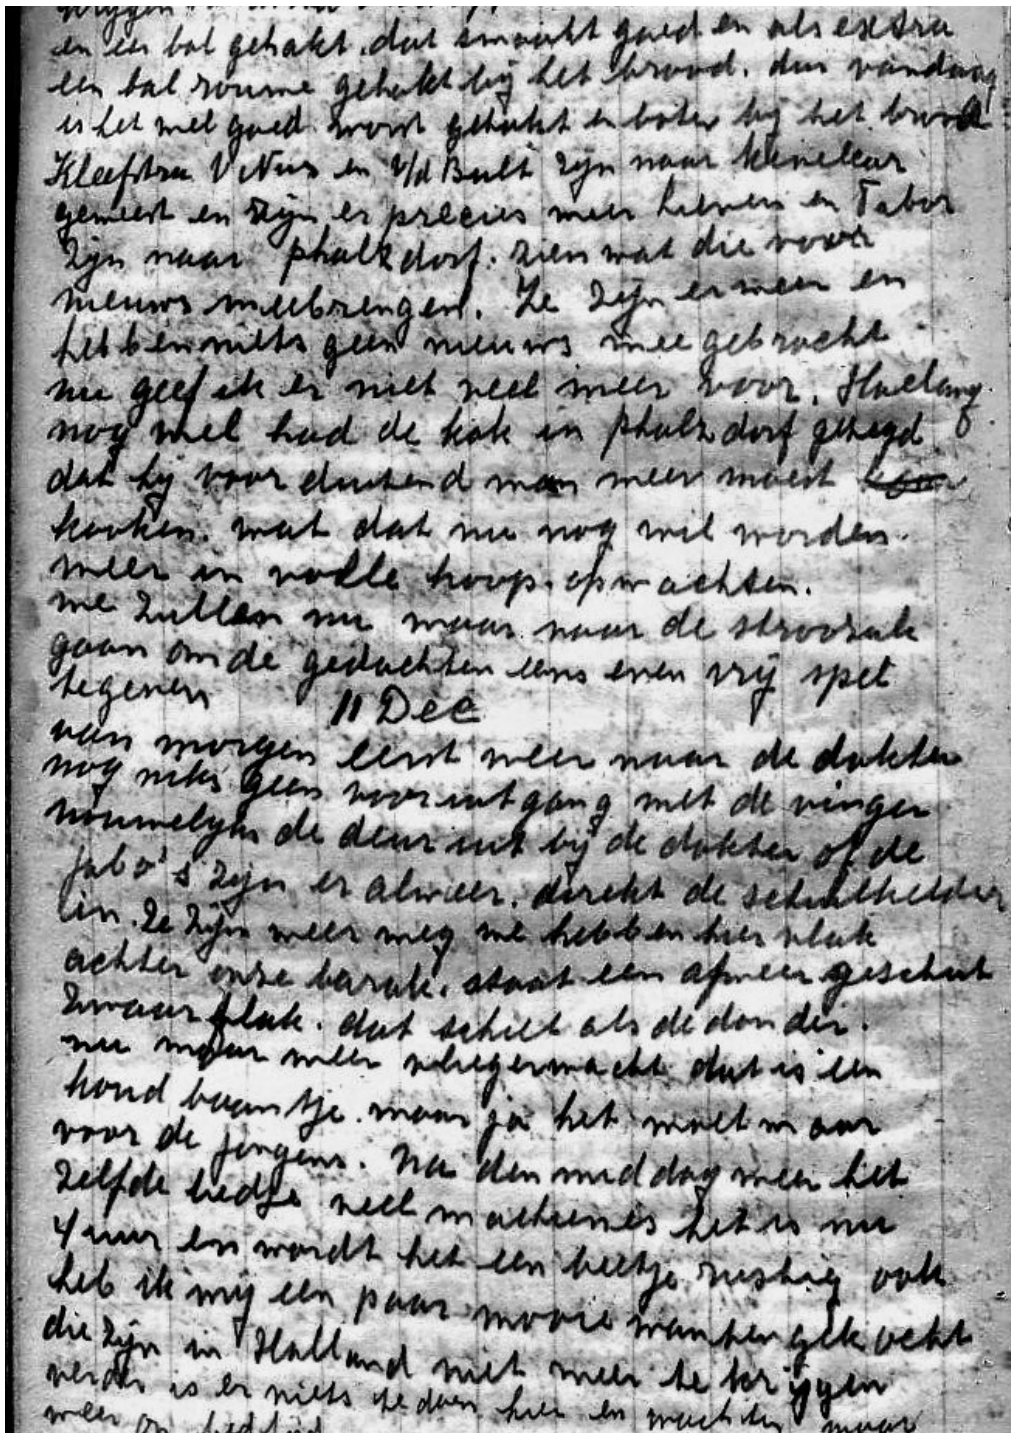 en een bal gehakt. dat smaakt goed en als extra
een bal rouwe gehakt bij het brood. dus vandaag
is het wel goed worst gehakt en boter bij het brood
Kleefstra V Nus en v/d Bult zijn naar Kevelaar
geweest en zijn er precies weer en Tabor
zijn naar phalzdorf. zien wat die voor
nieuws meebrengen. Ze zijn er weer en
hebben niets geen nieuws mee gebracht
nu geef ik er niet veel meer voor. Hoelang
nog wel had de kok in phalzdorf gezegd
dat hij voor duizend man meer moest
kooken. wat dat nu nog wil worden.
weer in volle hoop. opwachten.
we zullen nu maar naar de stroozak
gaan om de gedachten eens even vrij spel
tegeven
11 Dec
van morgen eerst weer naar de dokter
nog niks geen vooruitgang met de vinger
nouwelyks de deur uit bij de dokter of de
Jabo's zijn er alweer. direkt de schuilkelder
in. Ze zijn weer weg we hebben hier vlak
achter onze barak. staat een afweer geschut
zwaar flak. dat schiet als de donder.
nu maar weer vliegerwacht dat is een
hond baantje. maar ja het moet maar
voor de jongens. Na den middag weer het
zelfde liedje veel machienes het is nu
4 uur en wordt het een beetje rustig ook
heb ik mij een paar mooie wanten gekocht
die zijn in Holland niet meer te krijgen
verder is er niets te doen hier en wachten maar
weer op